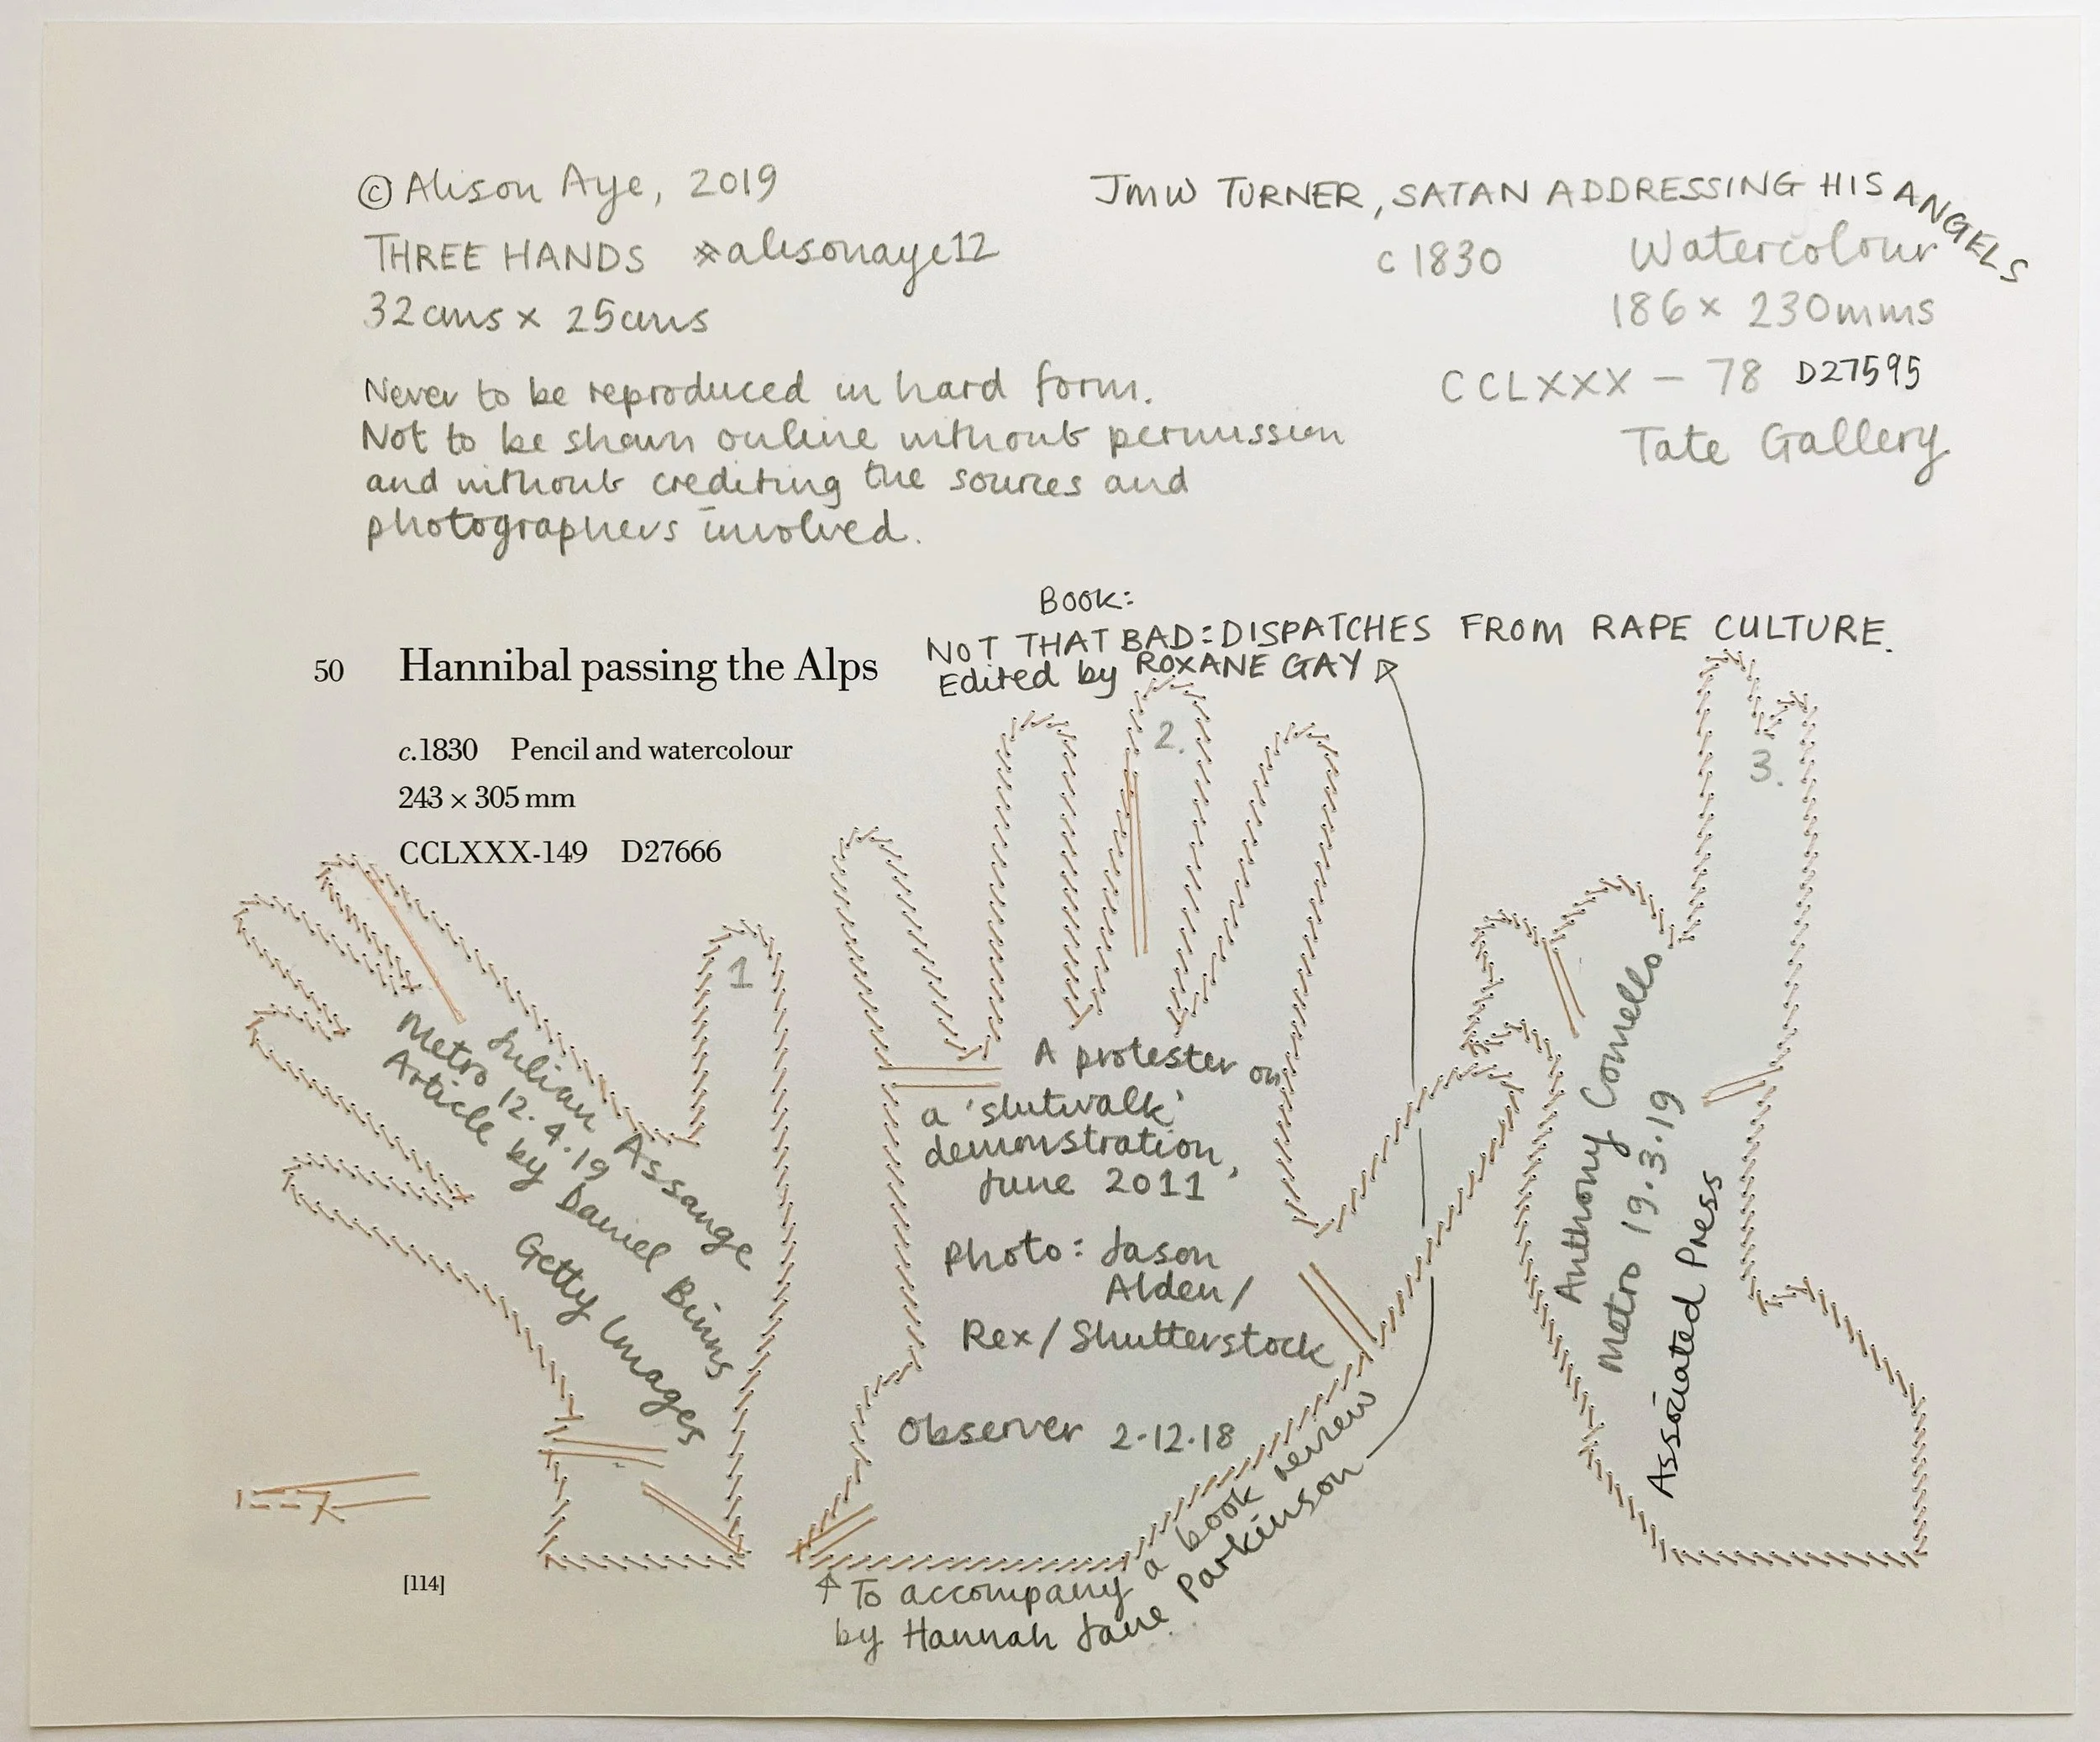 © Alison Aye, 2019
THREE HANDS *alisonaye12
32cms x 25cms
Never to be reproduced in hard form.
Not to be shown online without permission
and without crediting the sources and
photographers involved.
JMW TURNER, SATAN ADDRESSING HIS ANGELS
c 1830 Watercolour
186 x 230mms
CCLXXX - 78 D27595
Tate Gallery
BOOK:
NOT THAT BAD: DISPATCHES FROM RAPE CULTURE.
Edited by ROXANE GAY
50 Hannibal passing the Alps
c.1830 Pencil and watercolour
243 × 305 mm
CCLXXX-149 D27666
1
Julian Assange
Metro 12.4.19
Article by Daniel Binns
Getty Images
2.
A protester on
a 'slutwalk'
demonstration,
June 2011
Photo: Jason
Alden/
Rex/Shutterstock
Observer 2.12.18
To accompany a book review
by Hannah Jane Parkinson
3.
Anthony Comello
Metro 19.3.19
Associated Press
[114]